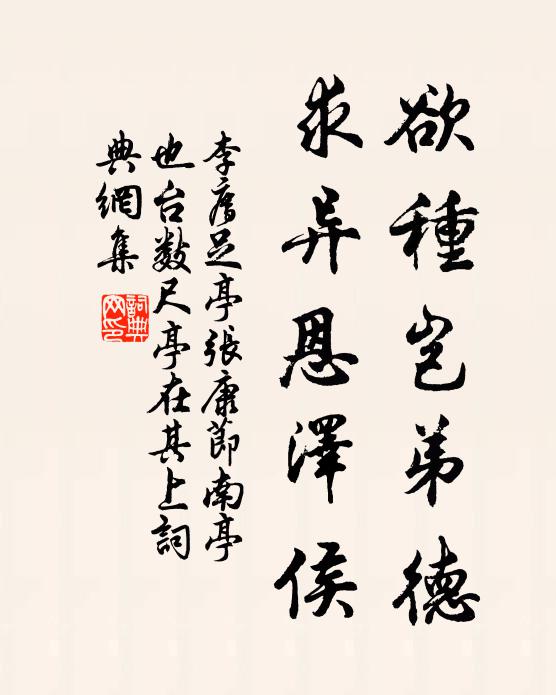 欲種岂弟德
求异恩澤侯
李唐足亭張康節南亭
也台数尺亭在其上詞
典網集
詞典网印